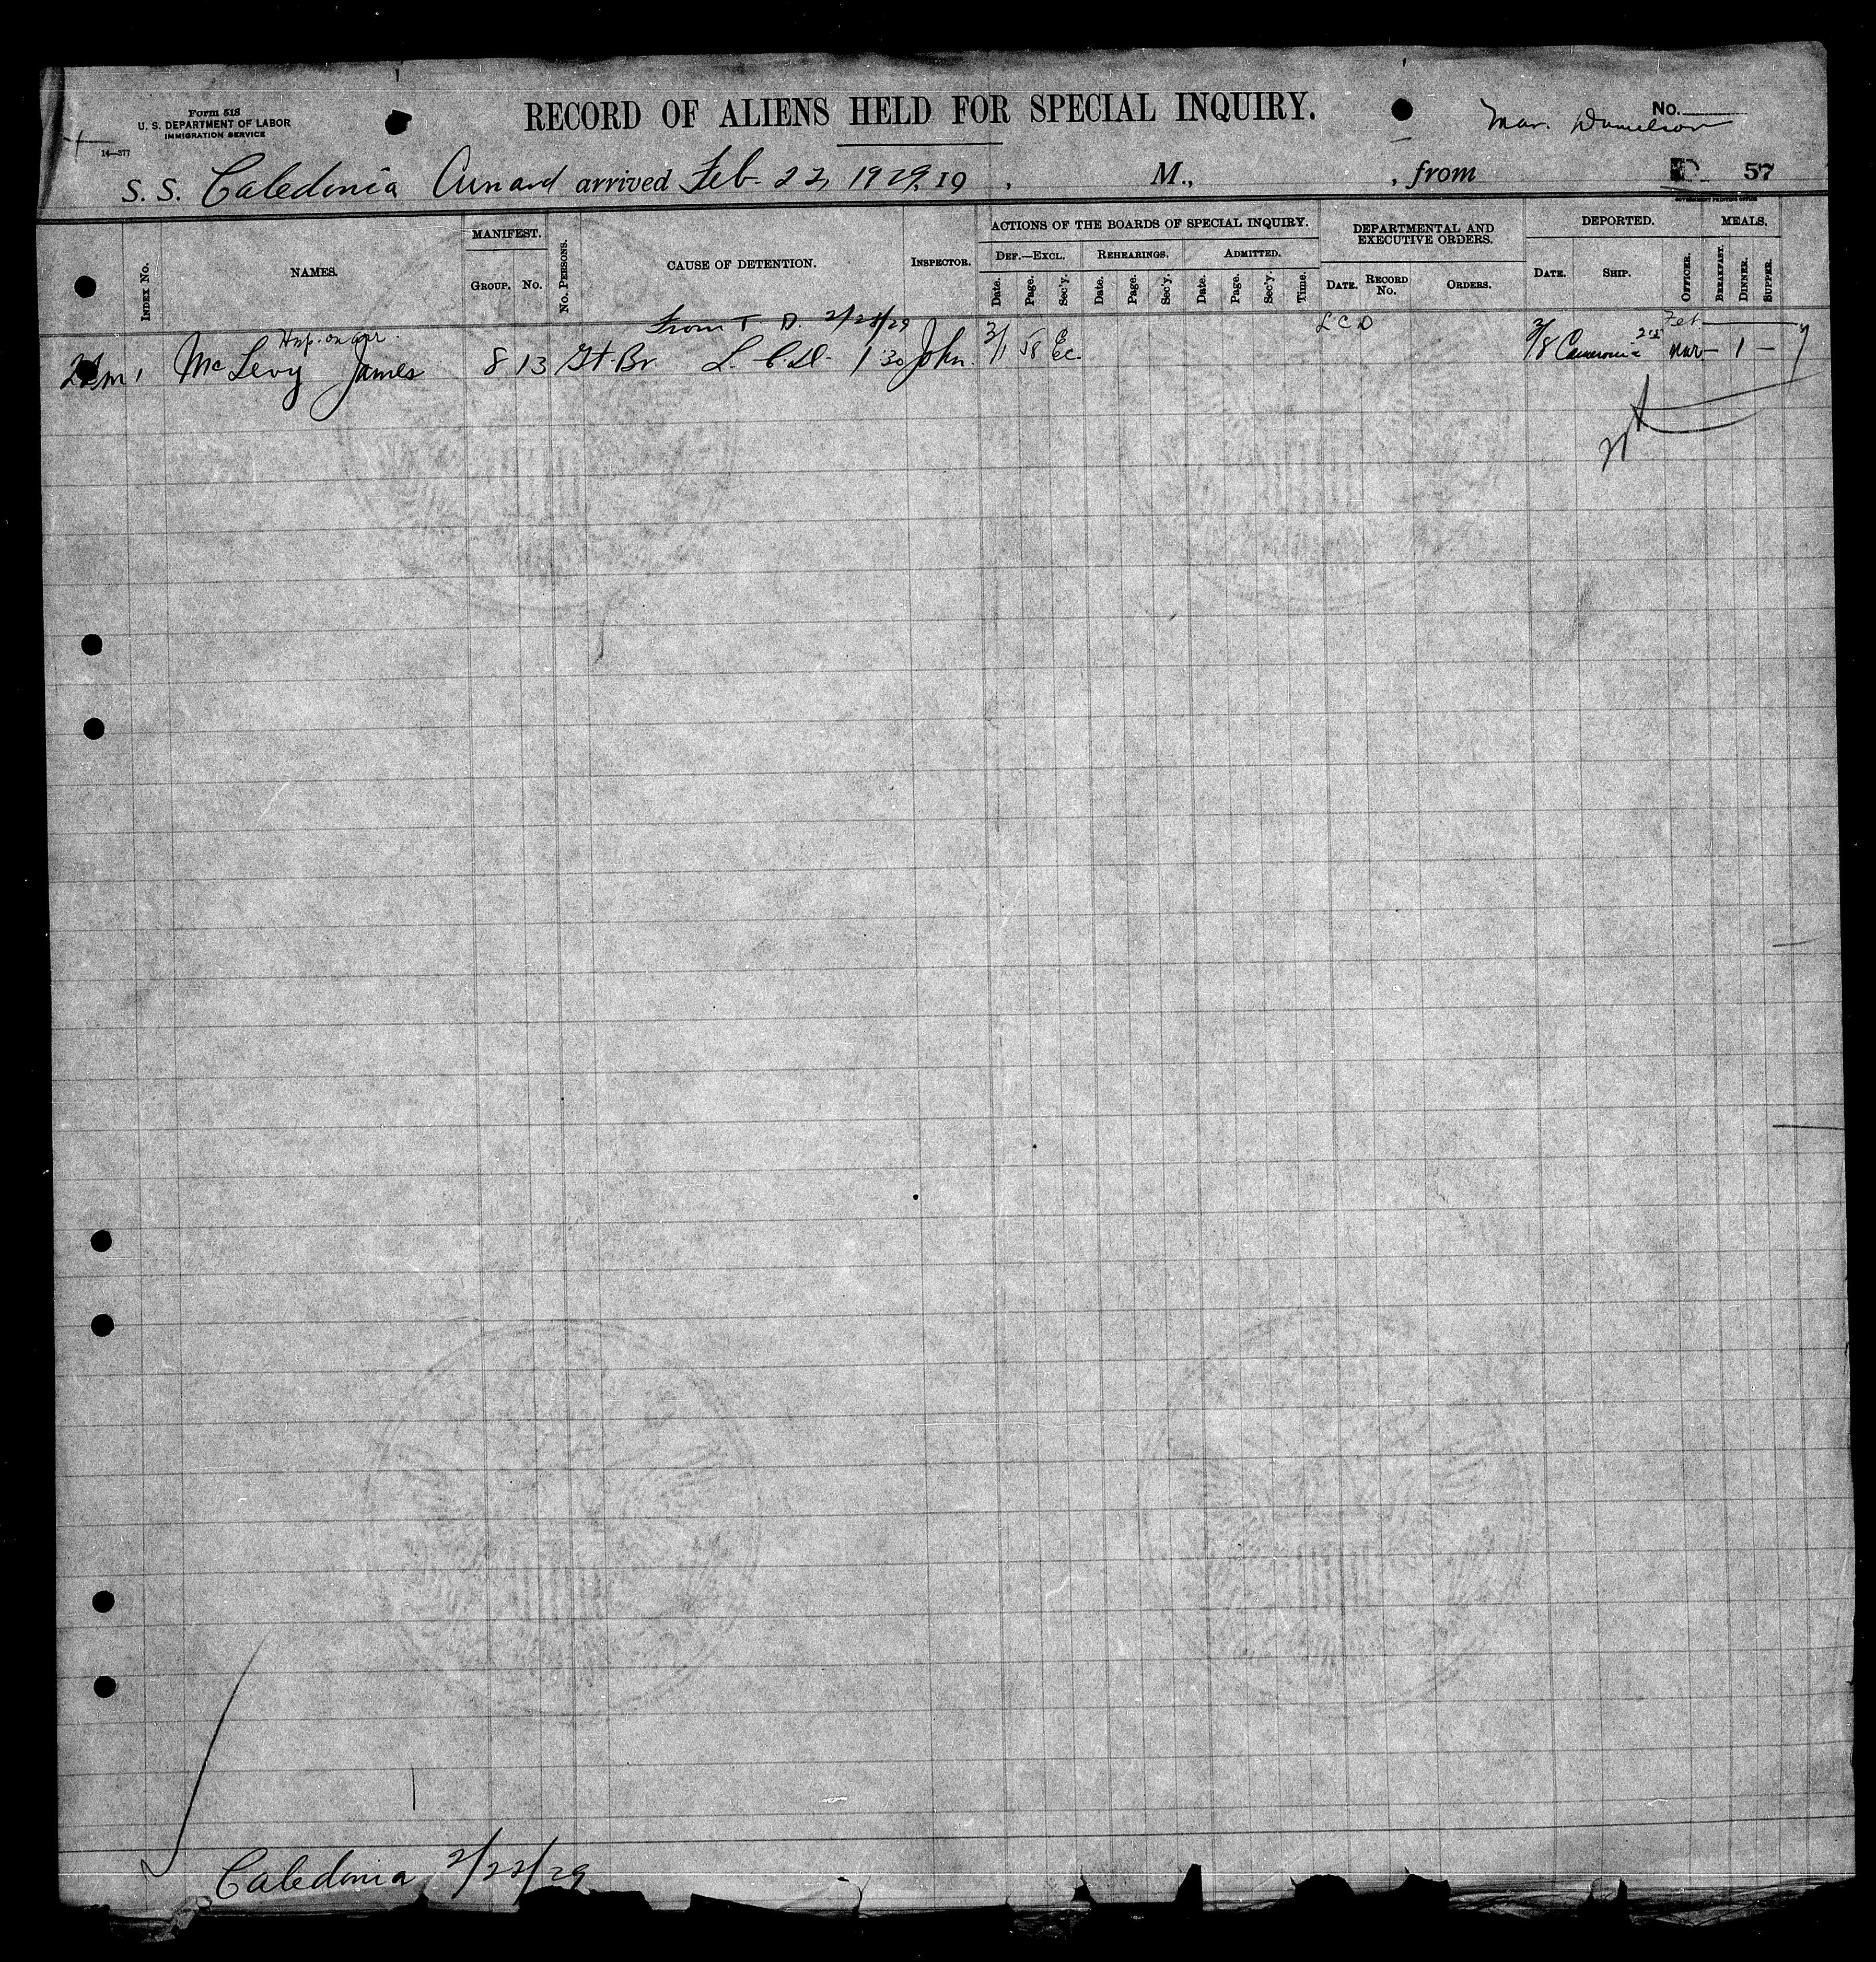 Form 518
U. S. DEPARTMENT OF LABOR
IMMIGRATION SERVICE
14—377
RECORD OF ALIENS HELD FOR SPECIAL INQUIRY.
No.
Mar. Danielson
S. S. Caledonia Cunard arrived Feb. 22, 1929, 19 , M., , from
D 57
GOVERNMENT PRINTING OFFICE
INDEX No. NAMES. MANIFEST. GROUP. No. No. PERSONS. CAUSE OF DETENTION. INSPECTOR.
ACTIONS OF THE BOARDS OF SPECIAL INQUIRY.
DEF.—EXCL. REHEARINGS. ADMITTED.
Date. Page. Sec'y. Date. Page. Sec'y. Date. Page. Sec'y. Time.
DEPARTMENTAL AND
EXECUTIVE ORDERS.
DATE. RECORD No. ORDERS.
DEPORTED.
DATE. SHIP. OFFICER.
MEALS.
BREAKFAST. DINNER. SUPPER.
Hsp. on arr. From T D. 2/28/29 L C D Feb
1 McLevy James 8 13 Gt. Br L. C. D. 1 30 John. 3/1 58 Ec. 3/8 Cameronia Mar — 1 —
Caledonia 2/22/29